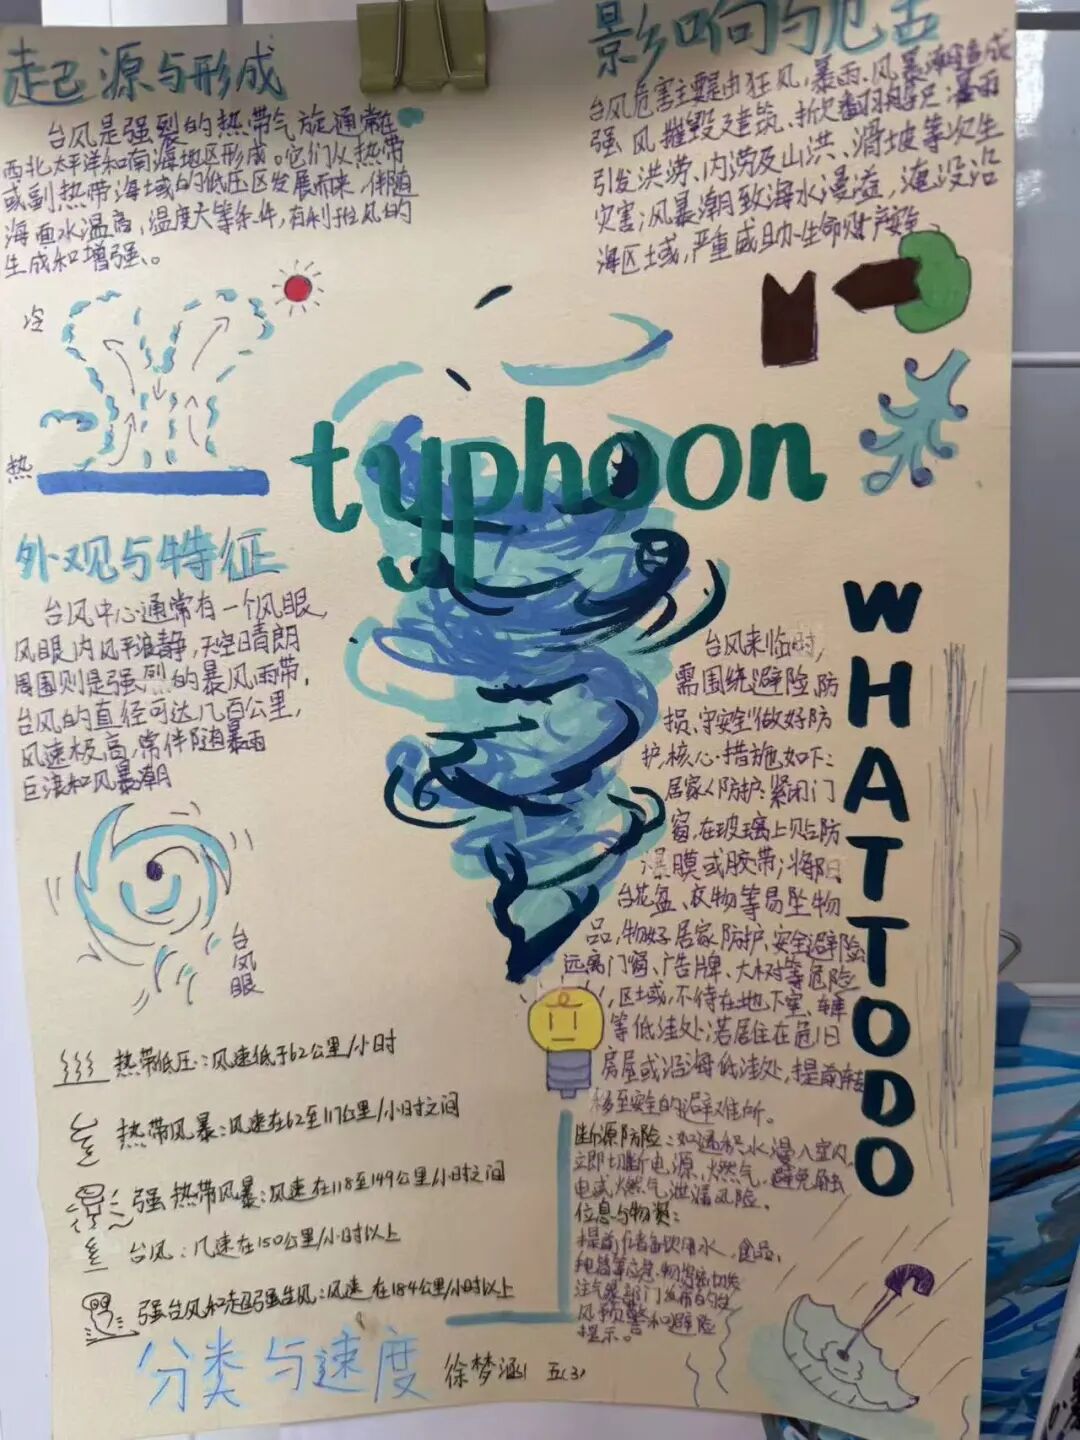 起源与形成
台风是强裂的热带气旋通常在
西北太平洋和南海地区形成。它们从热带
或副热带海域的低压区发展而来,伴随
海面水温高,温度大等条件,有利于台风的
生成和增强。
冷
热
影响与危害
台风危害主要是由狂风,暴雨、风暴潮造成
强风摧毁建筑、暴雨
引发洪涝、内涝及山洪、滑坡等次生
灾害;风暴潮致海水漫溢,淹没沿
海区域,严重威胁生命财产安全
typhoon
外观与特征
台风中心通常有一个风眼,
风眼内风平浪静,天空晴朗
周围则是强烈的暴风雨带,
台风的直径可达几百公里,
风速极高,常伴随暴雨
巨浪和风暴潮
台风眼
WHAT TO DO
台风来临时,
需围绕避险防
损、守安全做好防
护,核心措施如下:
居家防护:紧闭门
窗,在玻璃上贴防
爆膜或胶带;将阳
台花盆、衣物等易坠物
品,物好居家防护、安全避险
远离门窗、广告牌、大树等危险
区域,不待在地下室、车库
等低洼处;若居住在危旧
房屋或沿海低洼处,提前转
移至安全的避难所。
断源防险:如遇积水漫入室内,
立即切断电源,燃气,避免触
电或燃气泄漏风险。
信息与物资:
提前储备饮用水,食品、
风预警和避险
提示。
热带低压:风速低于62公里/小时
热带风暴:风速在62至117公里/小时之间
强热带风暴:风速在118至149公里/小时之间
台风:几速在150公里/小时以上
强台风和超强台风:风速在184公里/小时以上
分类与速度
徐梦涵 五(3)